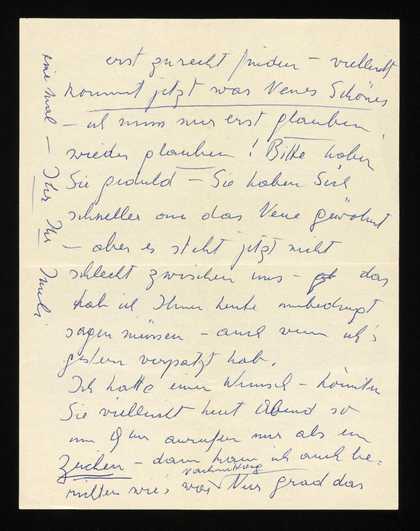 erst zurecht finden – vielleicht
kommt jetzt was Neues Schönes
– ich muss nur erst glauben,
wieder glauben! Bitte haben
Sie Geduld – Sie haben Sich
schneller an das Neue gewöhnt
– aber es steht jetzt nicht
schlecht zwischen uns – das
hab ich Ihnen heute unbedingt
sagen müssen – auch wenn ich's
gestern verpatzt hab.
Ich hatte einen Wunsch – könnten
Sie vielleicht heut Abend so
um Uhr anrufen nur als ein
Zeichen – dann kann ich auch be-
Nachmittag
wie Nur grad das
eine mal – Ihr Ihr